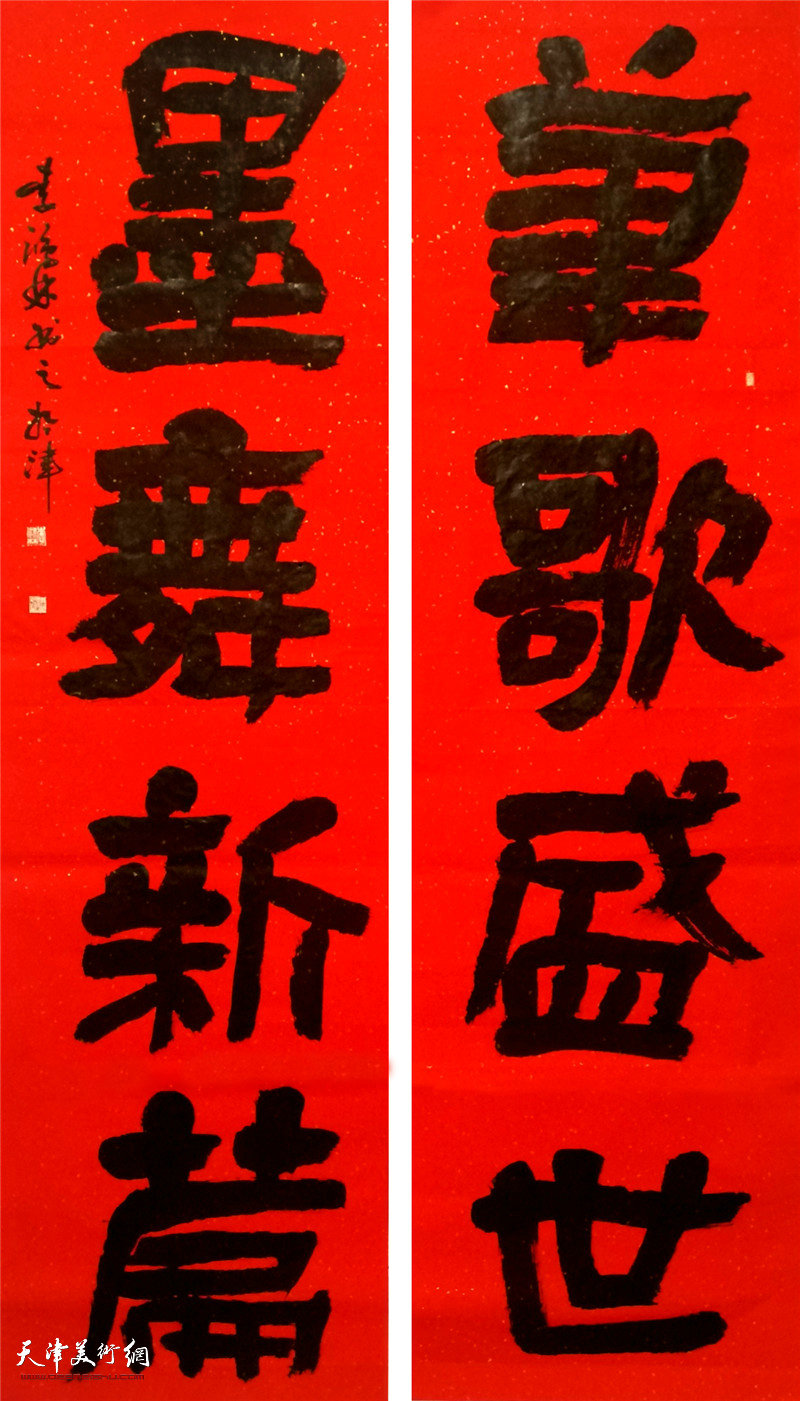 筆歌盛世
墨舞新篇
书之於津
天津美術網